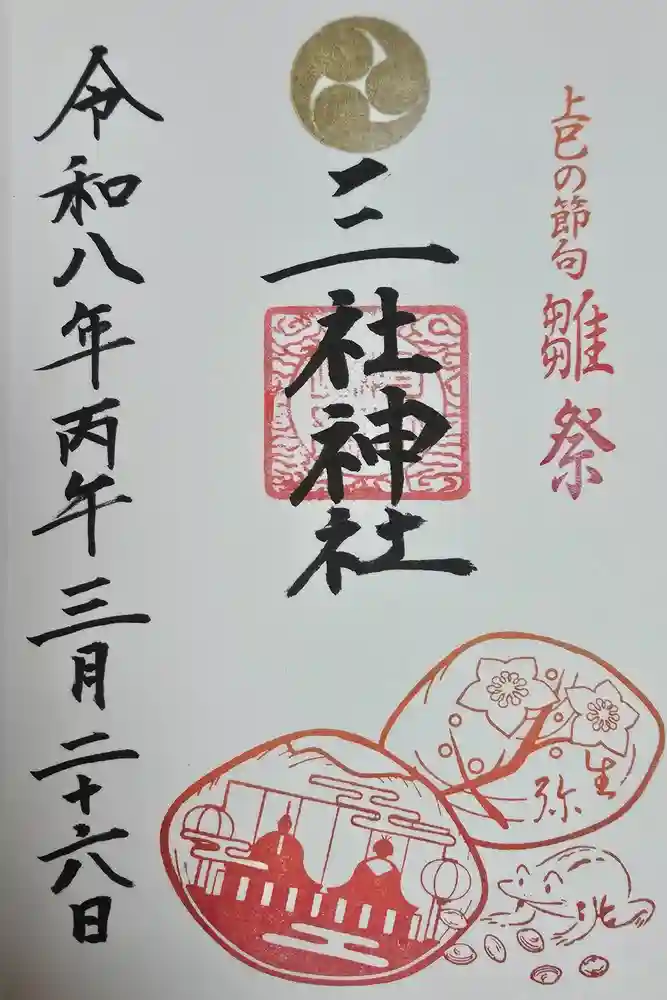 上巳の節句 雛祭
三社神社
弥生
令和八年丙午三月二十六日